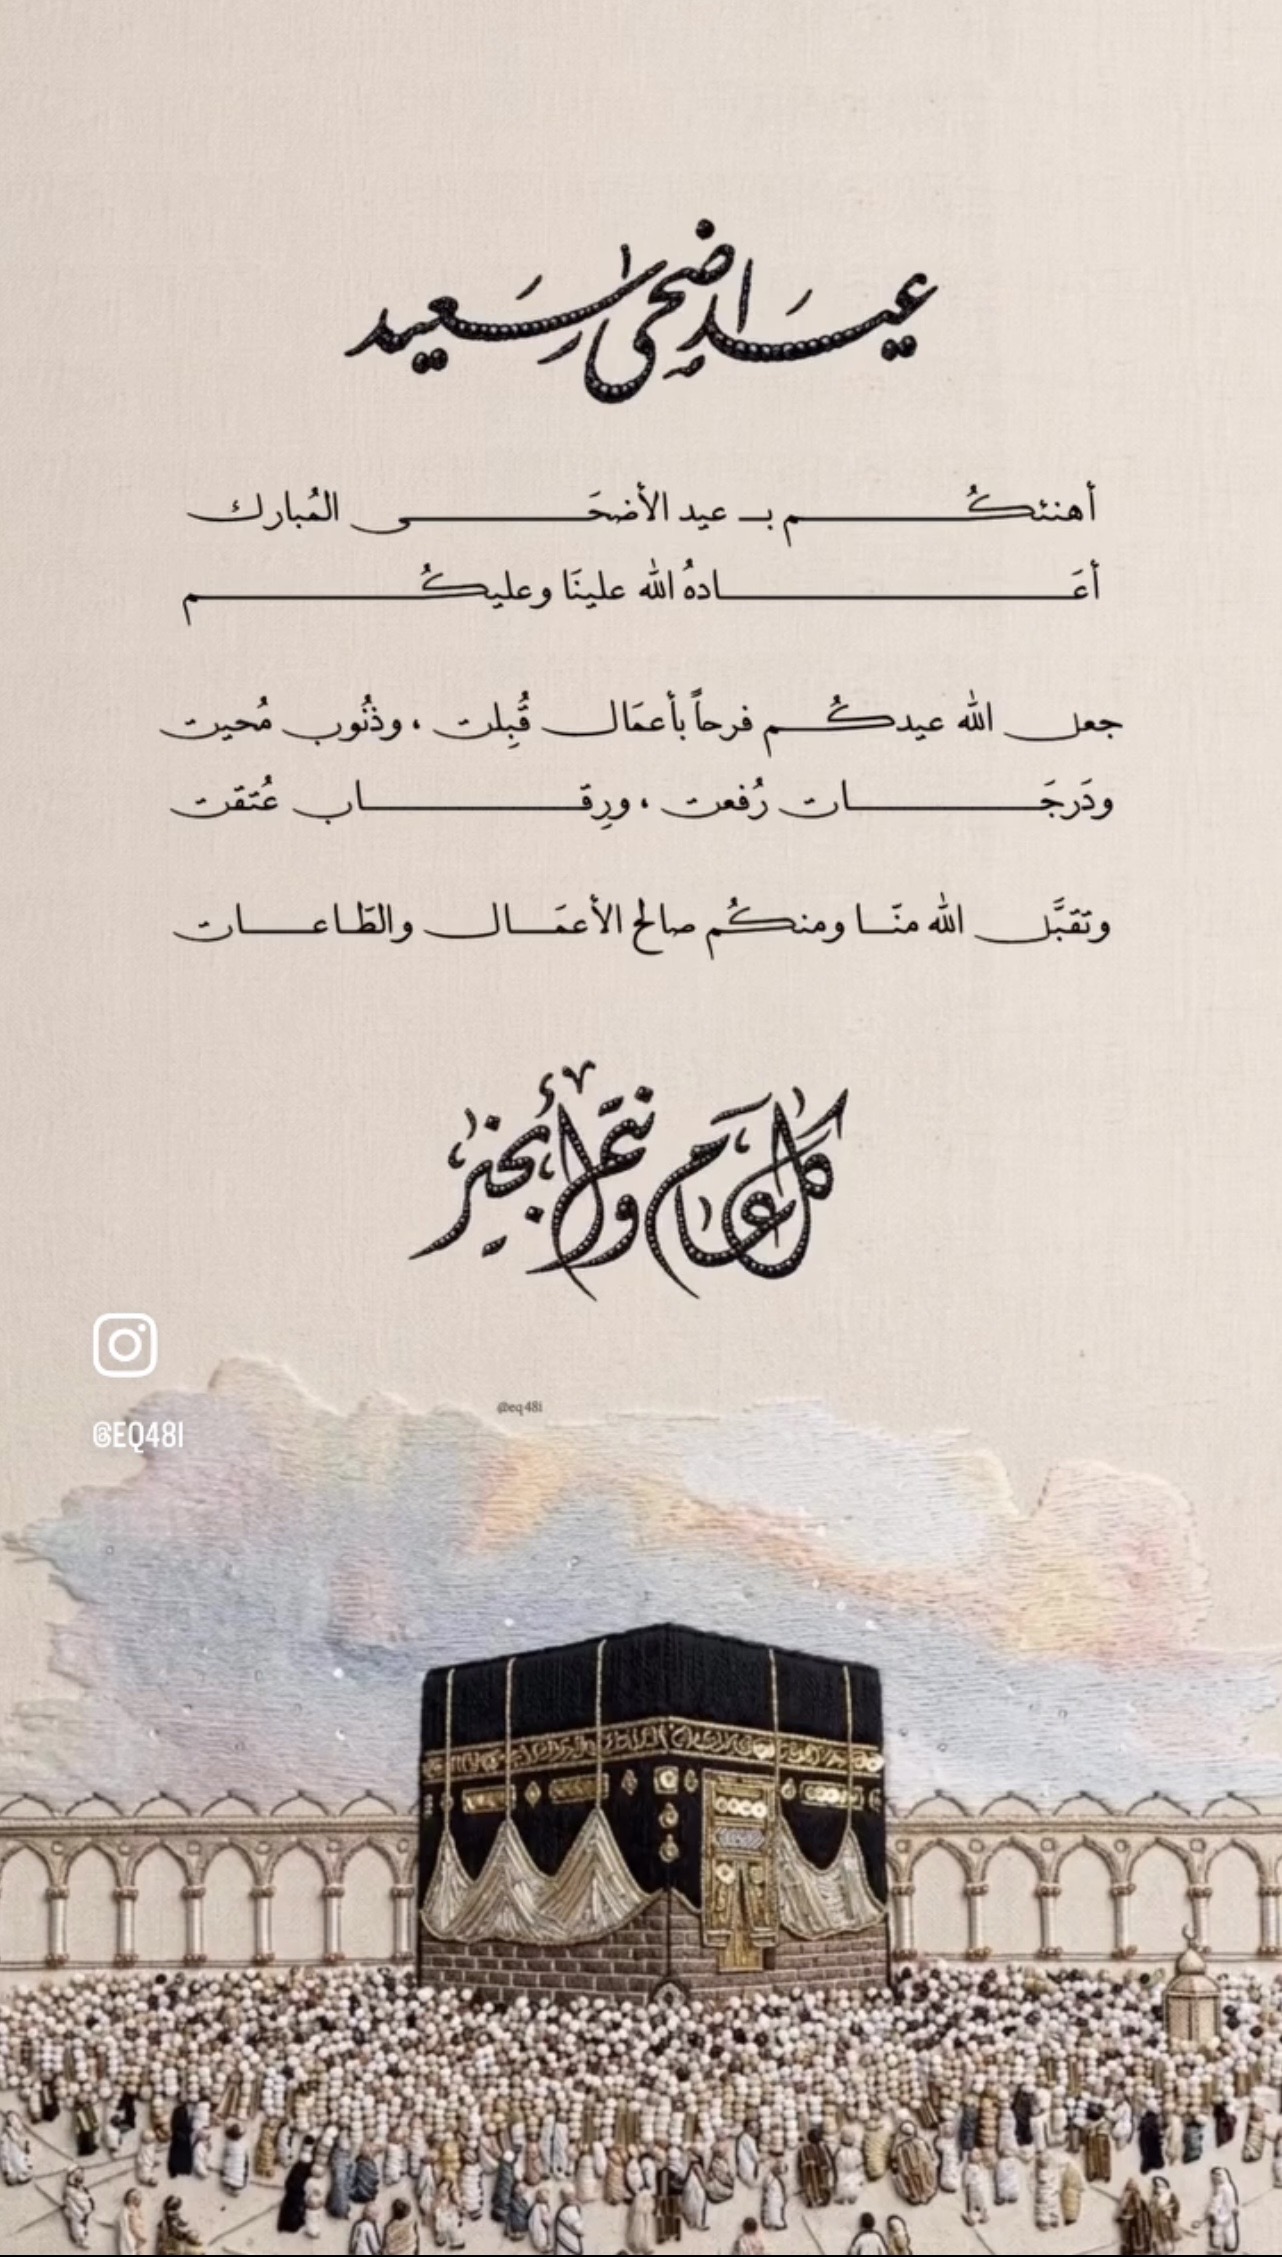 عيد أضحى سعيد
أهنئكُم بـ عيد الأضحَى المُبارك
أعَادهُ الله علينَا وعليكُم
جعل الله عيدكُم فرحاً بأعمَال قُبِلت ، وذنُوب مُحيت
ودَرجَات رُفعت ، ورِقاب عُتقت
وتقبَّل الله منَّا ومنكُم صالح الأعمَال والطَاعات
كل عام وأنتم بخير
@eq48l
@EQ48I